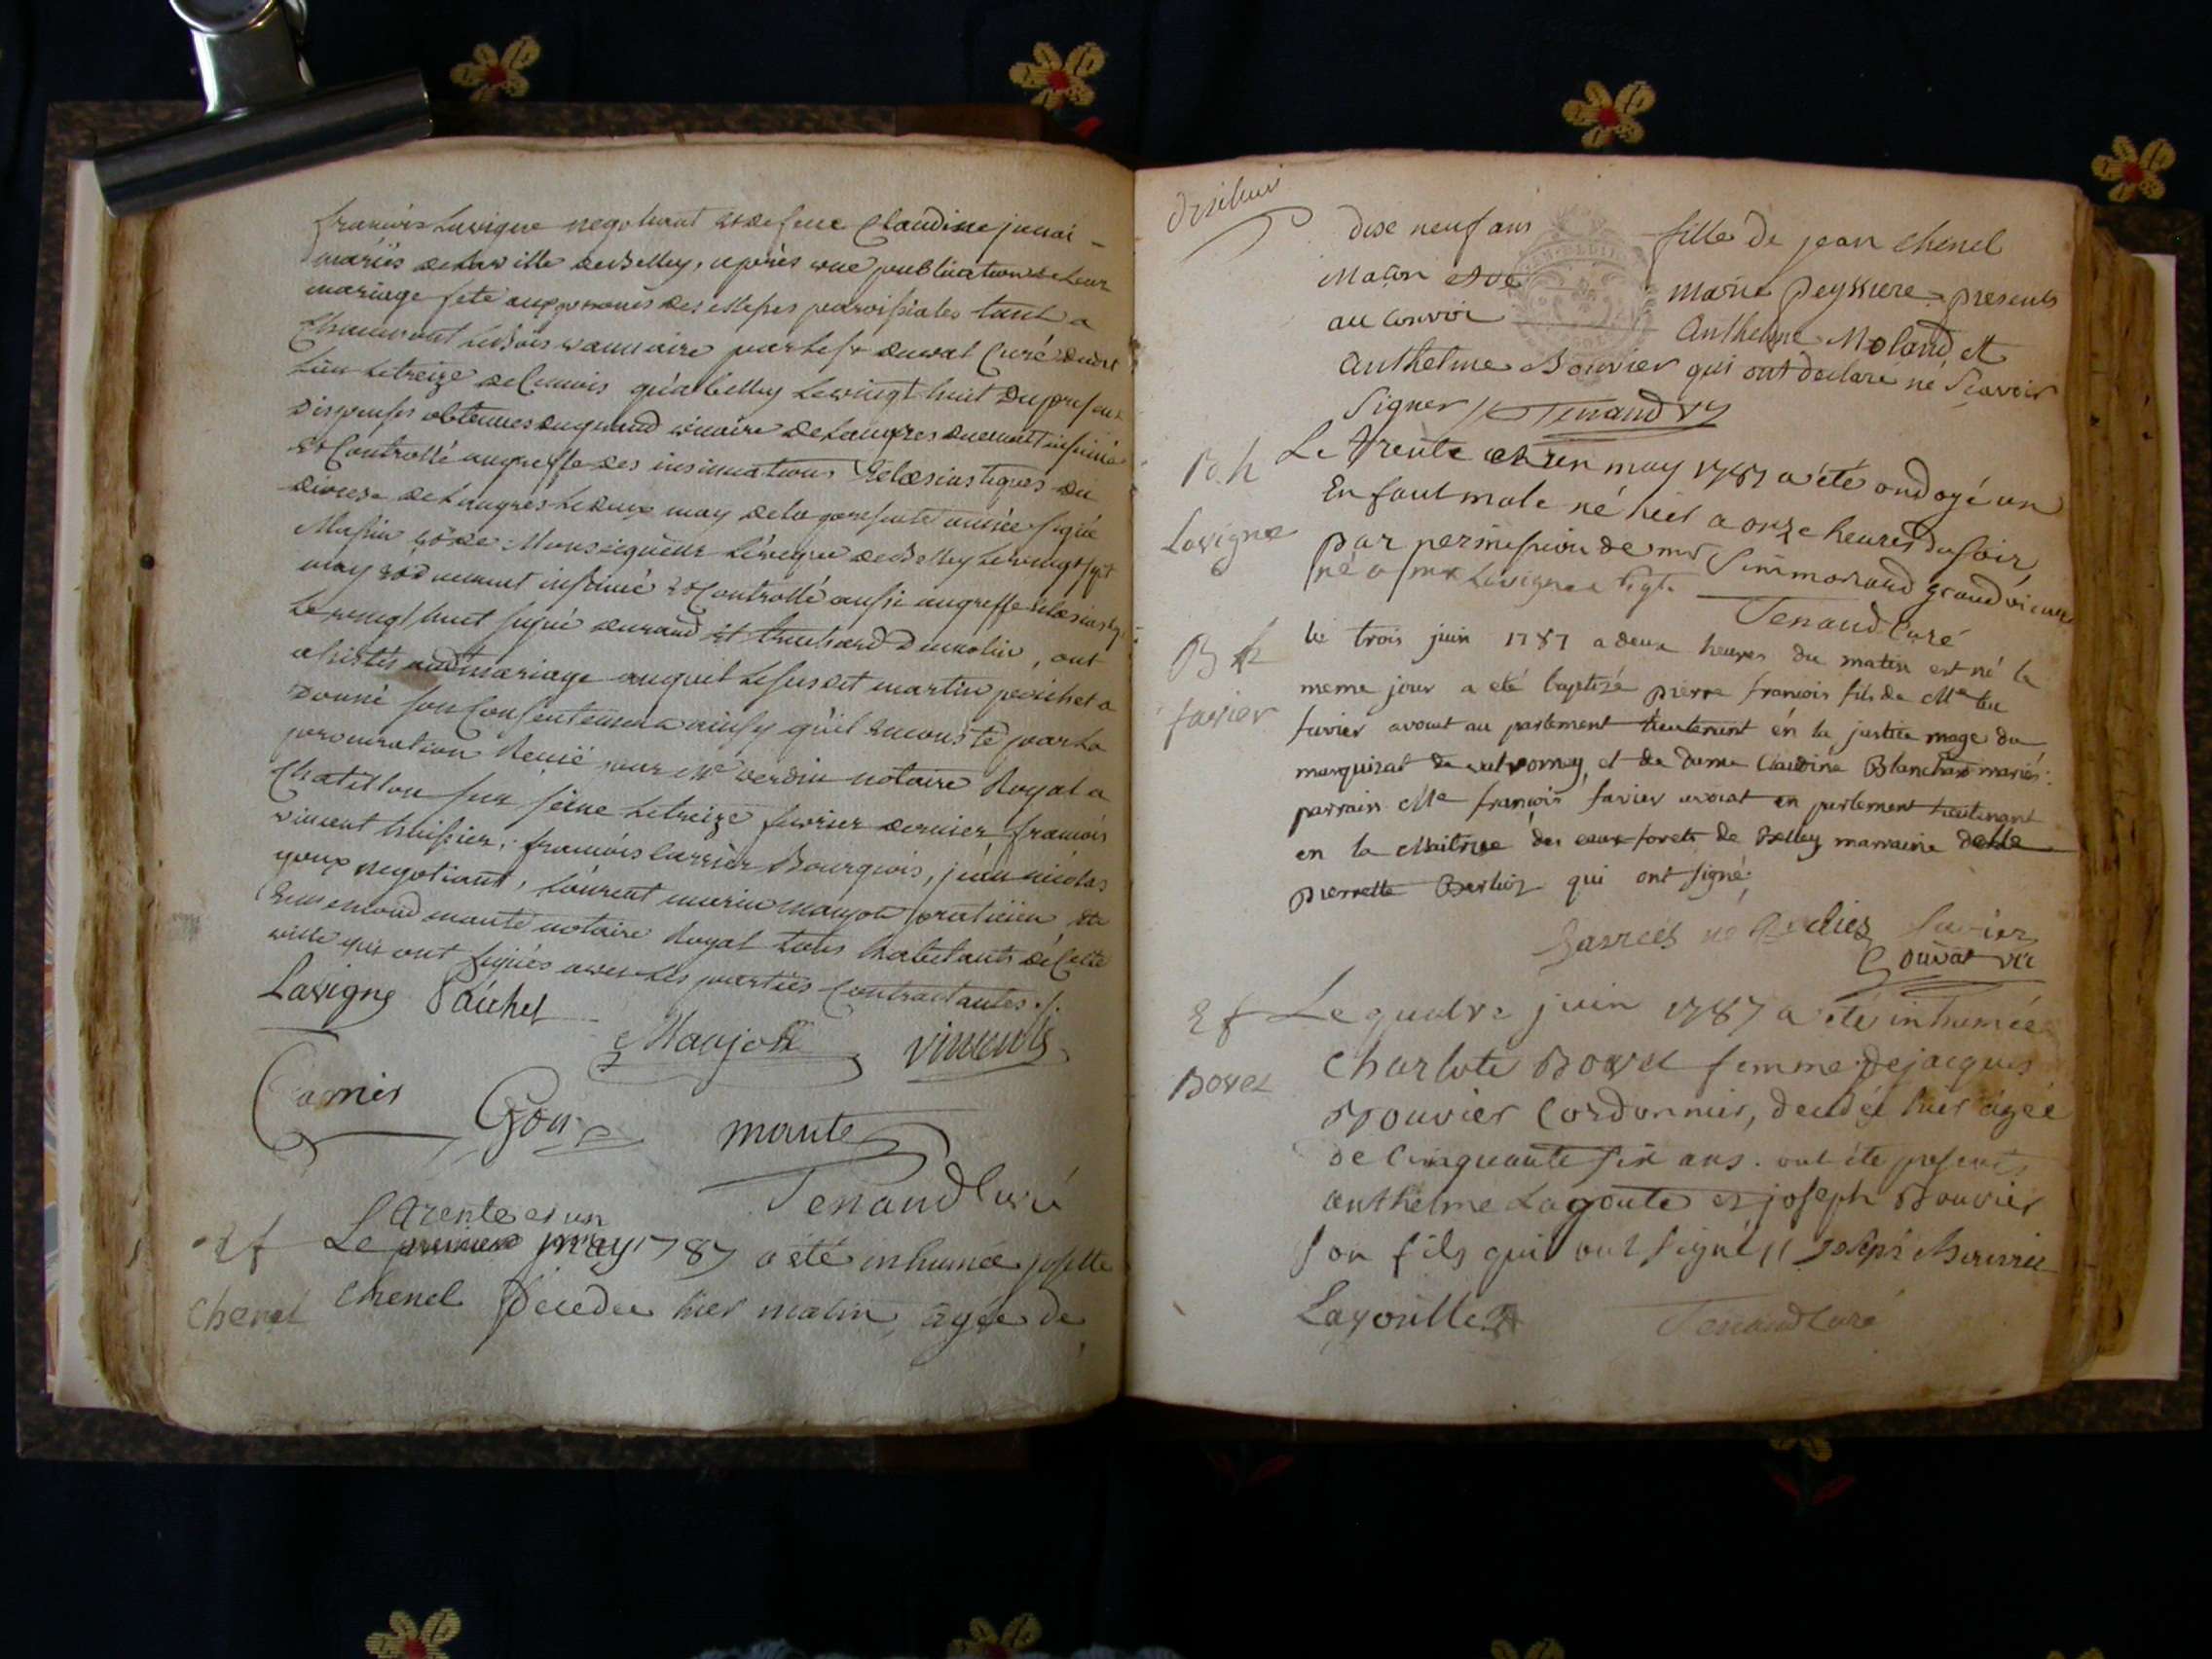 françois Lavigne negotiant et de feue Claudine
mariés de la ville de Belley, après une publication de leur
mariage fete aux prones des Messes paroissiales tant a
par le sr duval Curé dudit
Lieu le treize de ce mois qu'a belley le vingt huit du present
dispenses obtenues du grand vicaire de Langres duement insinué
et Controllé au greffe des insinuations Ecclesiastiques du
diocese de Langres le deux may de la presente année signé
et de Monseigneur L'évêque de Belley le vingt sept
may et duement insinué et Controllé aussi au greffe
le vingt huit signé durand et dumolin, ont
assistés audit mariage auquel le susdit martin a
donné son Consentement ainsy qu'il en conste par la
procuration Reçue par Me verdin notaire Royal a
Chatillon sur seine le treize fevrier dernier, françois
vincent huissier, françois Bourgeois, jean nicolas
goux negotiant, Laurent marin maujot praticien, et
mante notaire Royal tous habitants de Cette
ville qui ont signés avec les parties Contractantes ./.
Lavigne
Maujot vincent
mante
Tenand Curé
trente et un
Ef Le premier may 1787 a été inhumée josette
Chenel Chenel décédée hier matin, agée de
dixe neuf ans fille de jean Chenel
Maçon et de marie Peyssiere presents
au Convoi Anthelme Moland et
Anthelme Bouvier qui ont declaré ne Sçavoir
Signer Tenand
B. h Le trente et un may 1787 a été ondoyé un
Enfant male né hier a onze heures du soir,
Lavigne par permission de mr Simmonard grand vicaire
né a mr Lavigne
Tenand Curé
B h le trois juin 1787 a deux heures du matin est né le
meme jour a eté baptizé pierre françois fils de Me
favier favier avocat au parlement lieutenant en la justice mage du
marquizat de valromey, et de dame Claudine Blanchard mariés:
parrain Me françois favier avocat en parlement lieutenant
en la Maitrise des eaux forets de Belley marraine delle
pierrette Berlioz qui ont signé;
favier
Ef Le quatre juin 1787 a été inhumée
Charlote Bovet femme de jacques
Bovet Bouvier Cordonnier, decedée hier agée
de Cinquante six ans. ont été presents
anthelme Lagoute et joseph Bouvier
son fils qui ont signé // joseph Bouvier
Tenand Curé